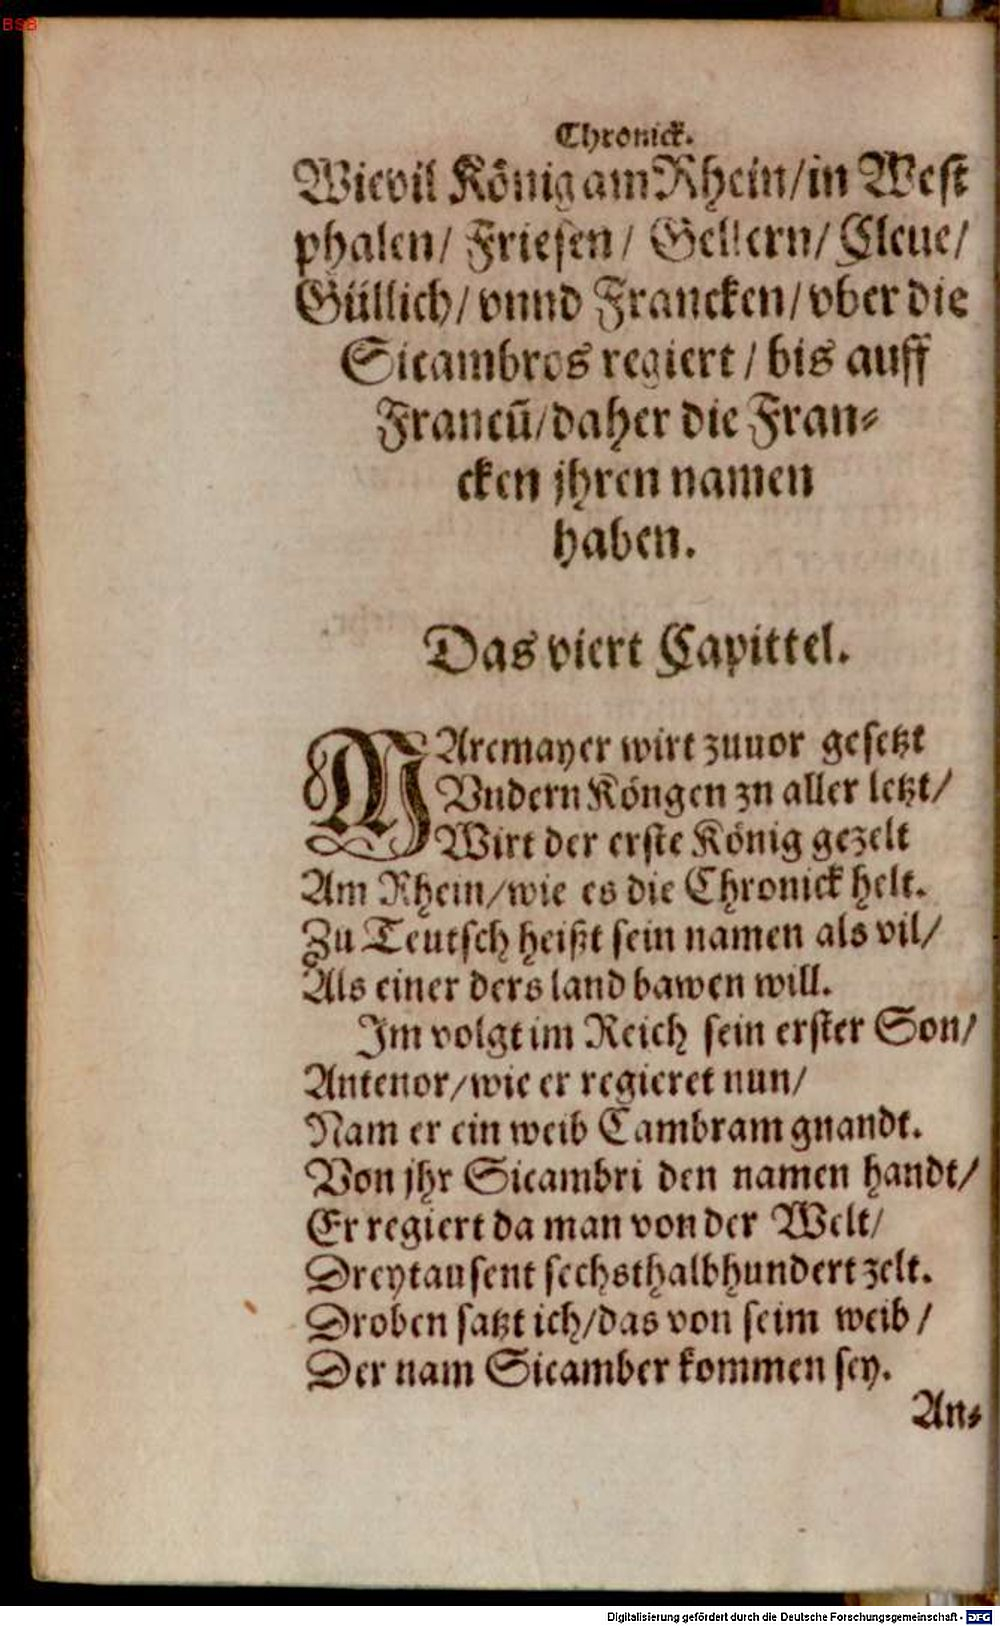 BSB
Chronick.
Wievil König am Rhein/in West
phalen/ Friesen/ Gellern/ Cleue/
Güllich/ vnnd Francken/ vber die
Sicambros regiert / bis auff
Francū/daher die Fran⸗
cken jhren namen
haben.
Das viert Capittel.
MArcmayer wirt zuuor gesetzt
Vndern Köngen zn aller letzt/
Wirt der erste König gezelt
Am Rhein/wie es die Chronick helt.
Zu Teutsch heißt sein namen als vil/
Als einer ders land bawen will.
Im volgt im Reich sein erster Son/
Antenor/wie er regieret nun/
Nam er ein weib Cambram gnandt.
Von jhr Sicambri den namen handt/
Er regiert da man von der Welt/
Dreytausent sechsthalbhundert zelt.
Droben satzt ich/das von seim weib /
Der nam Sicamber kommen sey.
An⸗
Digitalisierung gefördert durch die Deutsche Forschungsgemeinschaft - DFG